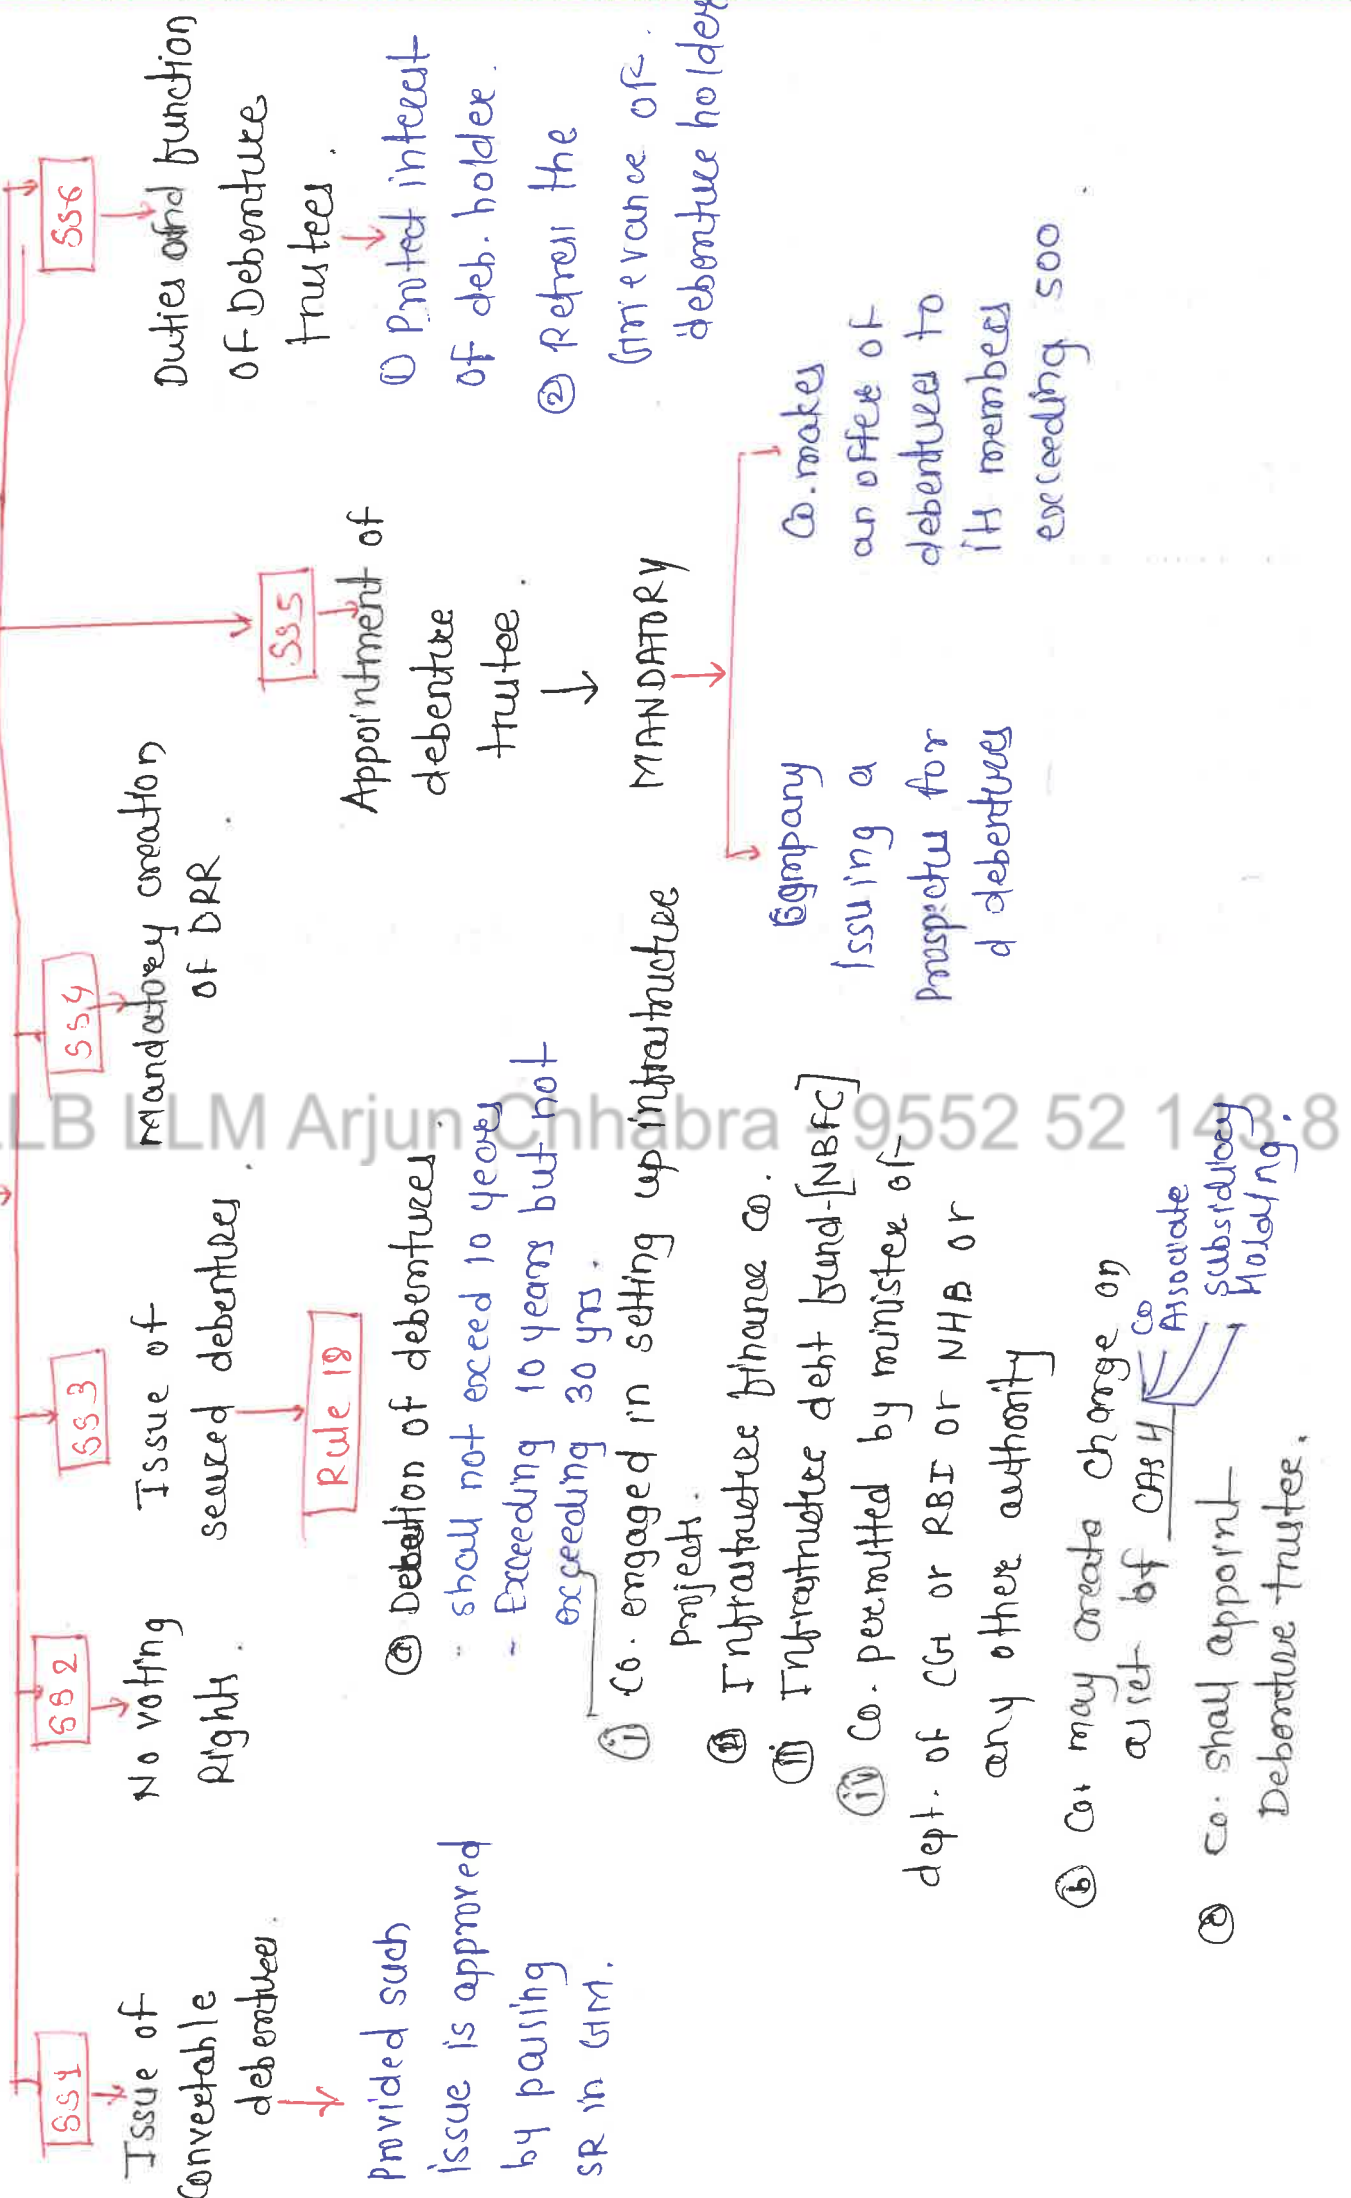 SS1
Issue of
Convertable
debentures.
Provided such
issue is approved
by passing
SR in GM.
SS2
No voting
Rights.
SS3
Issue of
secured debentures
Rule 18
(a) of debentures.
- shall not exceed 10 years
- Exceeding 10 years but not
exceeding 30 yrs.
(i) Co. engaged in setting up infrastructure
projects.
(ii) Infrastructure finance co.
(iii) Infrastructure debt fund-[NBFC]
(iv) Co. permitted by minister of
dept. of CG or RBI or NHB or
any other authority]
(b) Co. may create charge on
asset of CASH
Co
Associate
Subsidiary
Holding.
Co. shall appoint
Debenture trustee.
SS4
Mandatory creation
of DRR
SS5
Appointment of
debenture
trustee.
MANDATORY
Company
Issuing a
prospectus for
d debentures
Co. makes
an offer of
debentures to
its members
exceeding 500
SS6
Duties and function
of Debenture
trustees.
① Protect interest
of deb. holder.
② Retress the
Grievance of
debenture holder
LLB LLM Arjun Chhabra - 9552 52 143 8